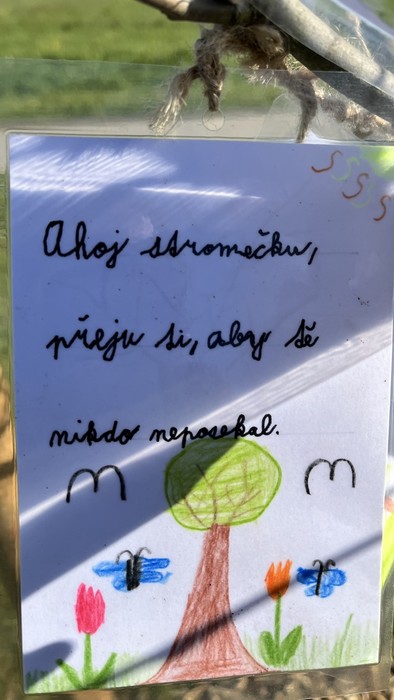 Ahoj stromečku,
přeju si, aby tě
nikdo neposekal.